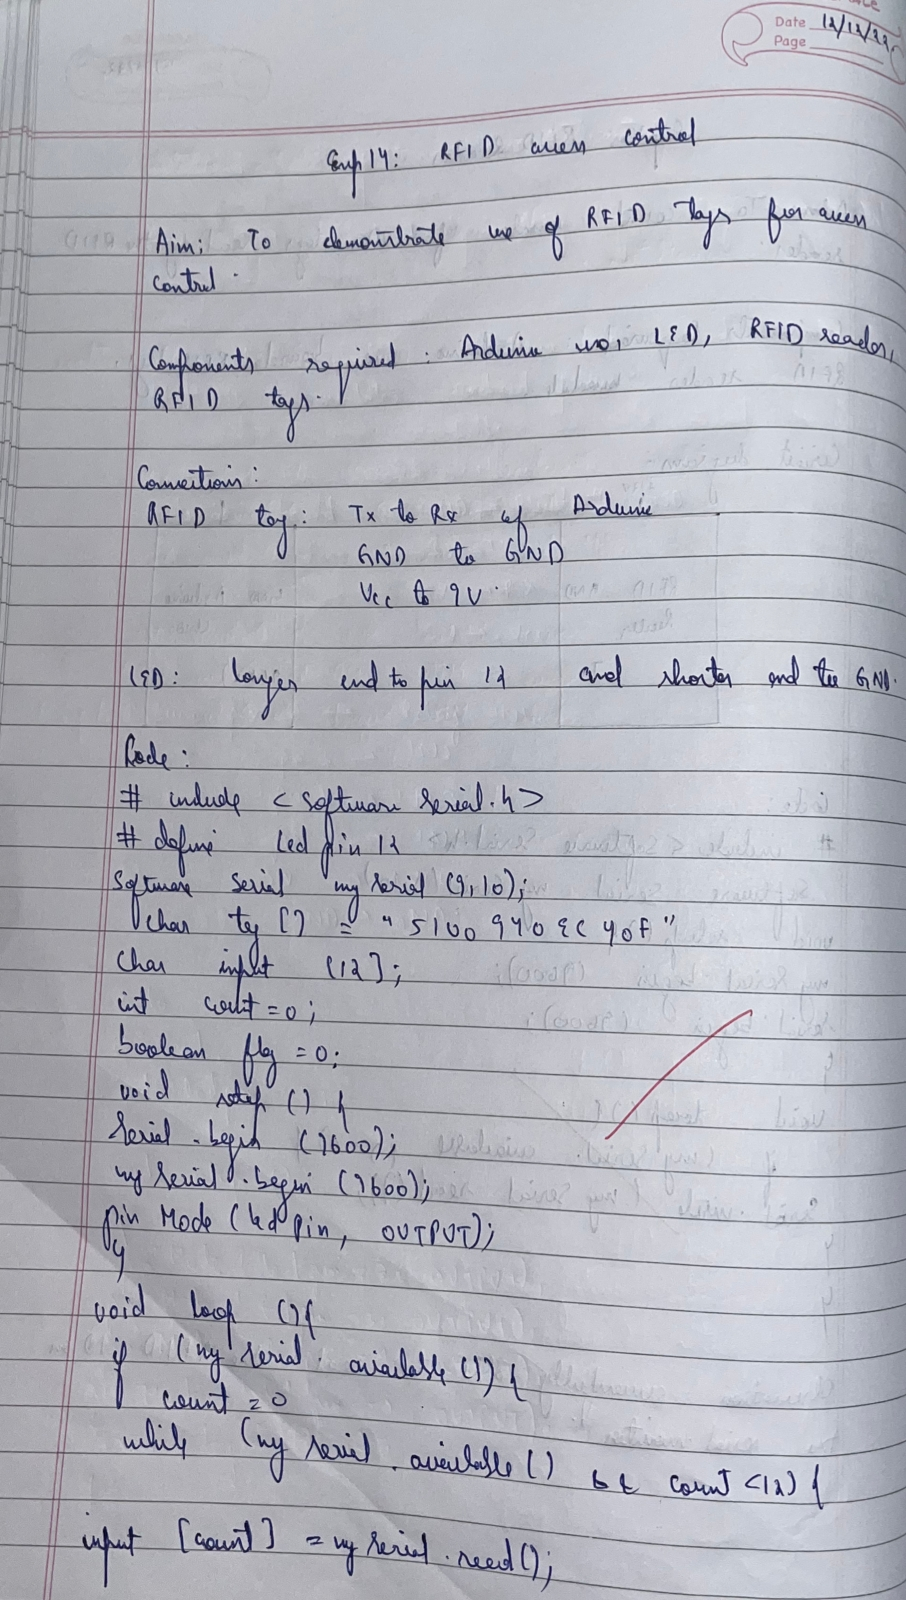 Date 12/12/22
Page
Exp 14: RFID access control
Aim: To demonstrate use of RFID Tags for access
control.
Components required: Arduino uno, LED, RFID reader,
RFID tags.
Connections:
RFID tag: Tx to Rx of Arduino
GND to GND
Vcc to 9V.
LED: longer end to pin 12 and shorter end to GND.
Code:
# include < software Serial.h>
# define led pin 12
Software serial my serial (9,10);
char tag [] = "5100940
char input [12];
int count = 0;
boolean flag = 0;
void setup () {
Serial. begin (9600);
my Serial. begin (9600);
pin Mode (led pin, OUTPUT);
}
void loop () {
if (my serial. available ()) {
count = 0
while (my serial. available () && count <12) {
input [count] = my serial. read();